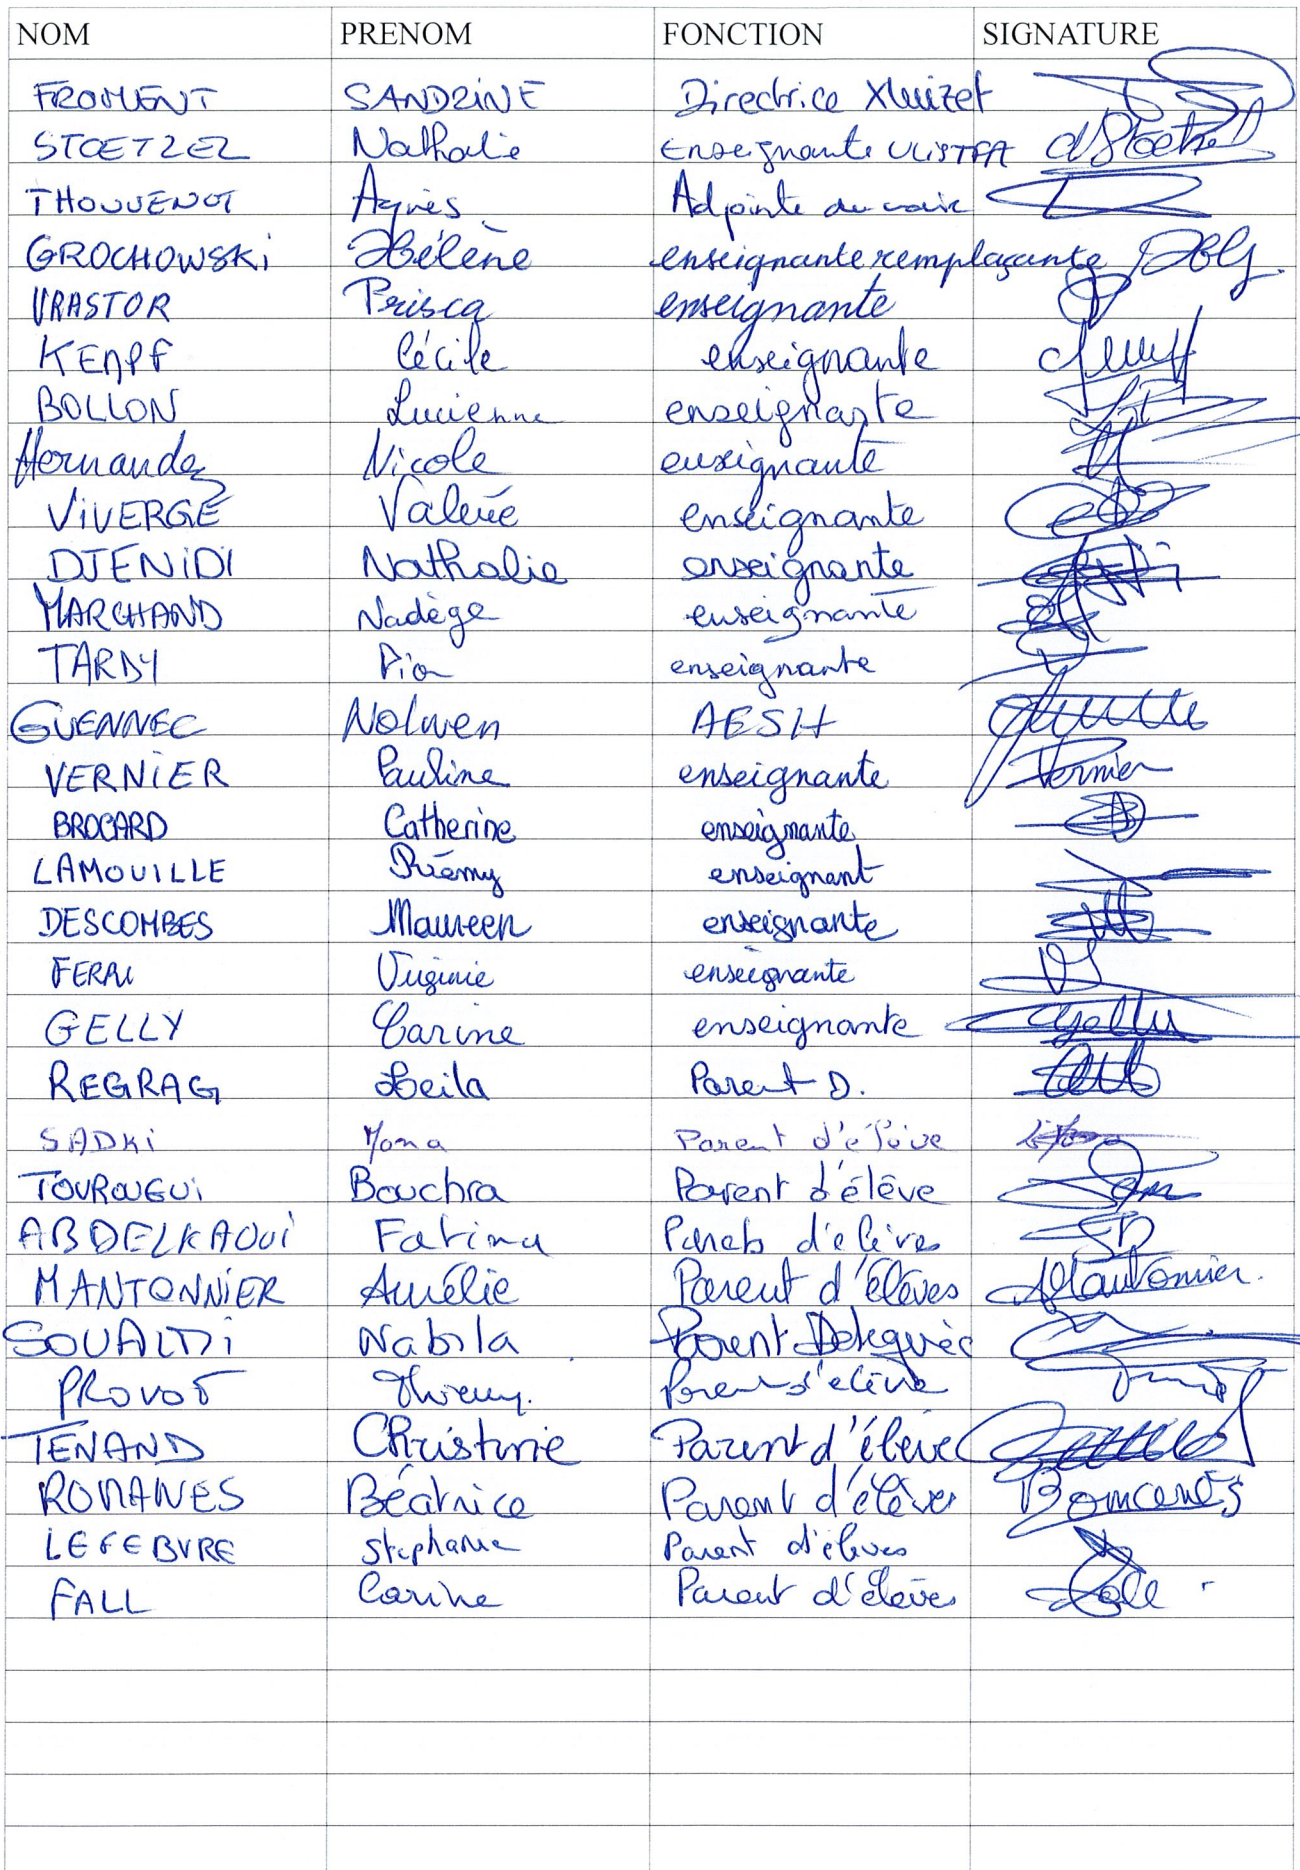 NOM PRENOM FONCTION SIGNATURE
FROMENT SANDRINE Directrice
STOETZEL Nathalie Enseignante
THOUVENOT Agnès Adjointe au maire
GROCHOWSKi Hélène enseignante remplaçante
VRASTOR Prisca enseignante
KEMPF Cécile enseignante
BOLLON Lucienne enseignante
Hernandez Nicole enseignante
ViVERGE Valérie enseignante
DJENiDi Nathalie enseignante
MARCHAND Nadège enseignante
TARDY Pia enseignante
GUENNEC Nolwen AESH
VERNiER Pauline enseignante Vernier
BROCARD Catherine enseignante
LAMOUILLE Rémy enseignant
DESCOMBES Maureen enseignante
FERRI Virginie enseignante
GELLY Carine enseignante Gelly
REGRAG Leila Parent D.
SADKi Mona Parent d'élève
TOUROUGUi Bouchra Parent d'élève
ABDELKAOUi Fatima d'élèves
MANTONNiER Aurélie Parent d'élèves Mantonnier
Nabila Parent
PROVOT Thierry Parent d'élève
TENAND Christine Parent d'élève
ROMANES Béatrice Parent d'élèves
LEFEBVRE Stephanie Parent d'élèves
FALL Carine Parent d'élèves Fall